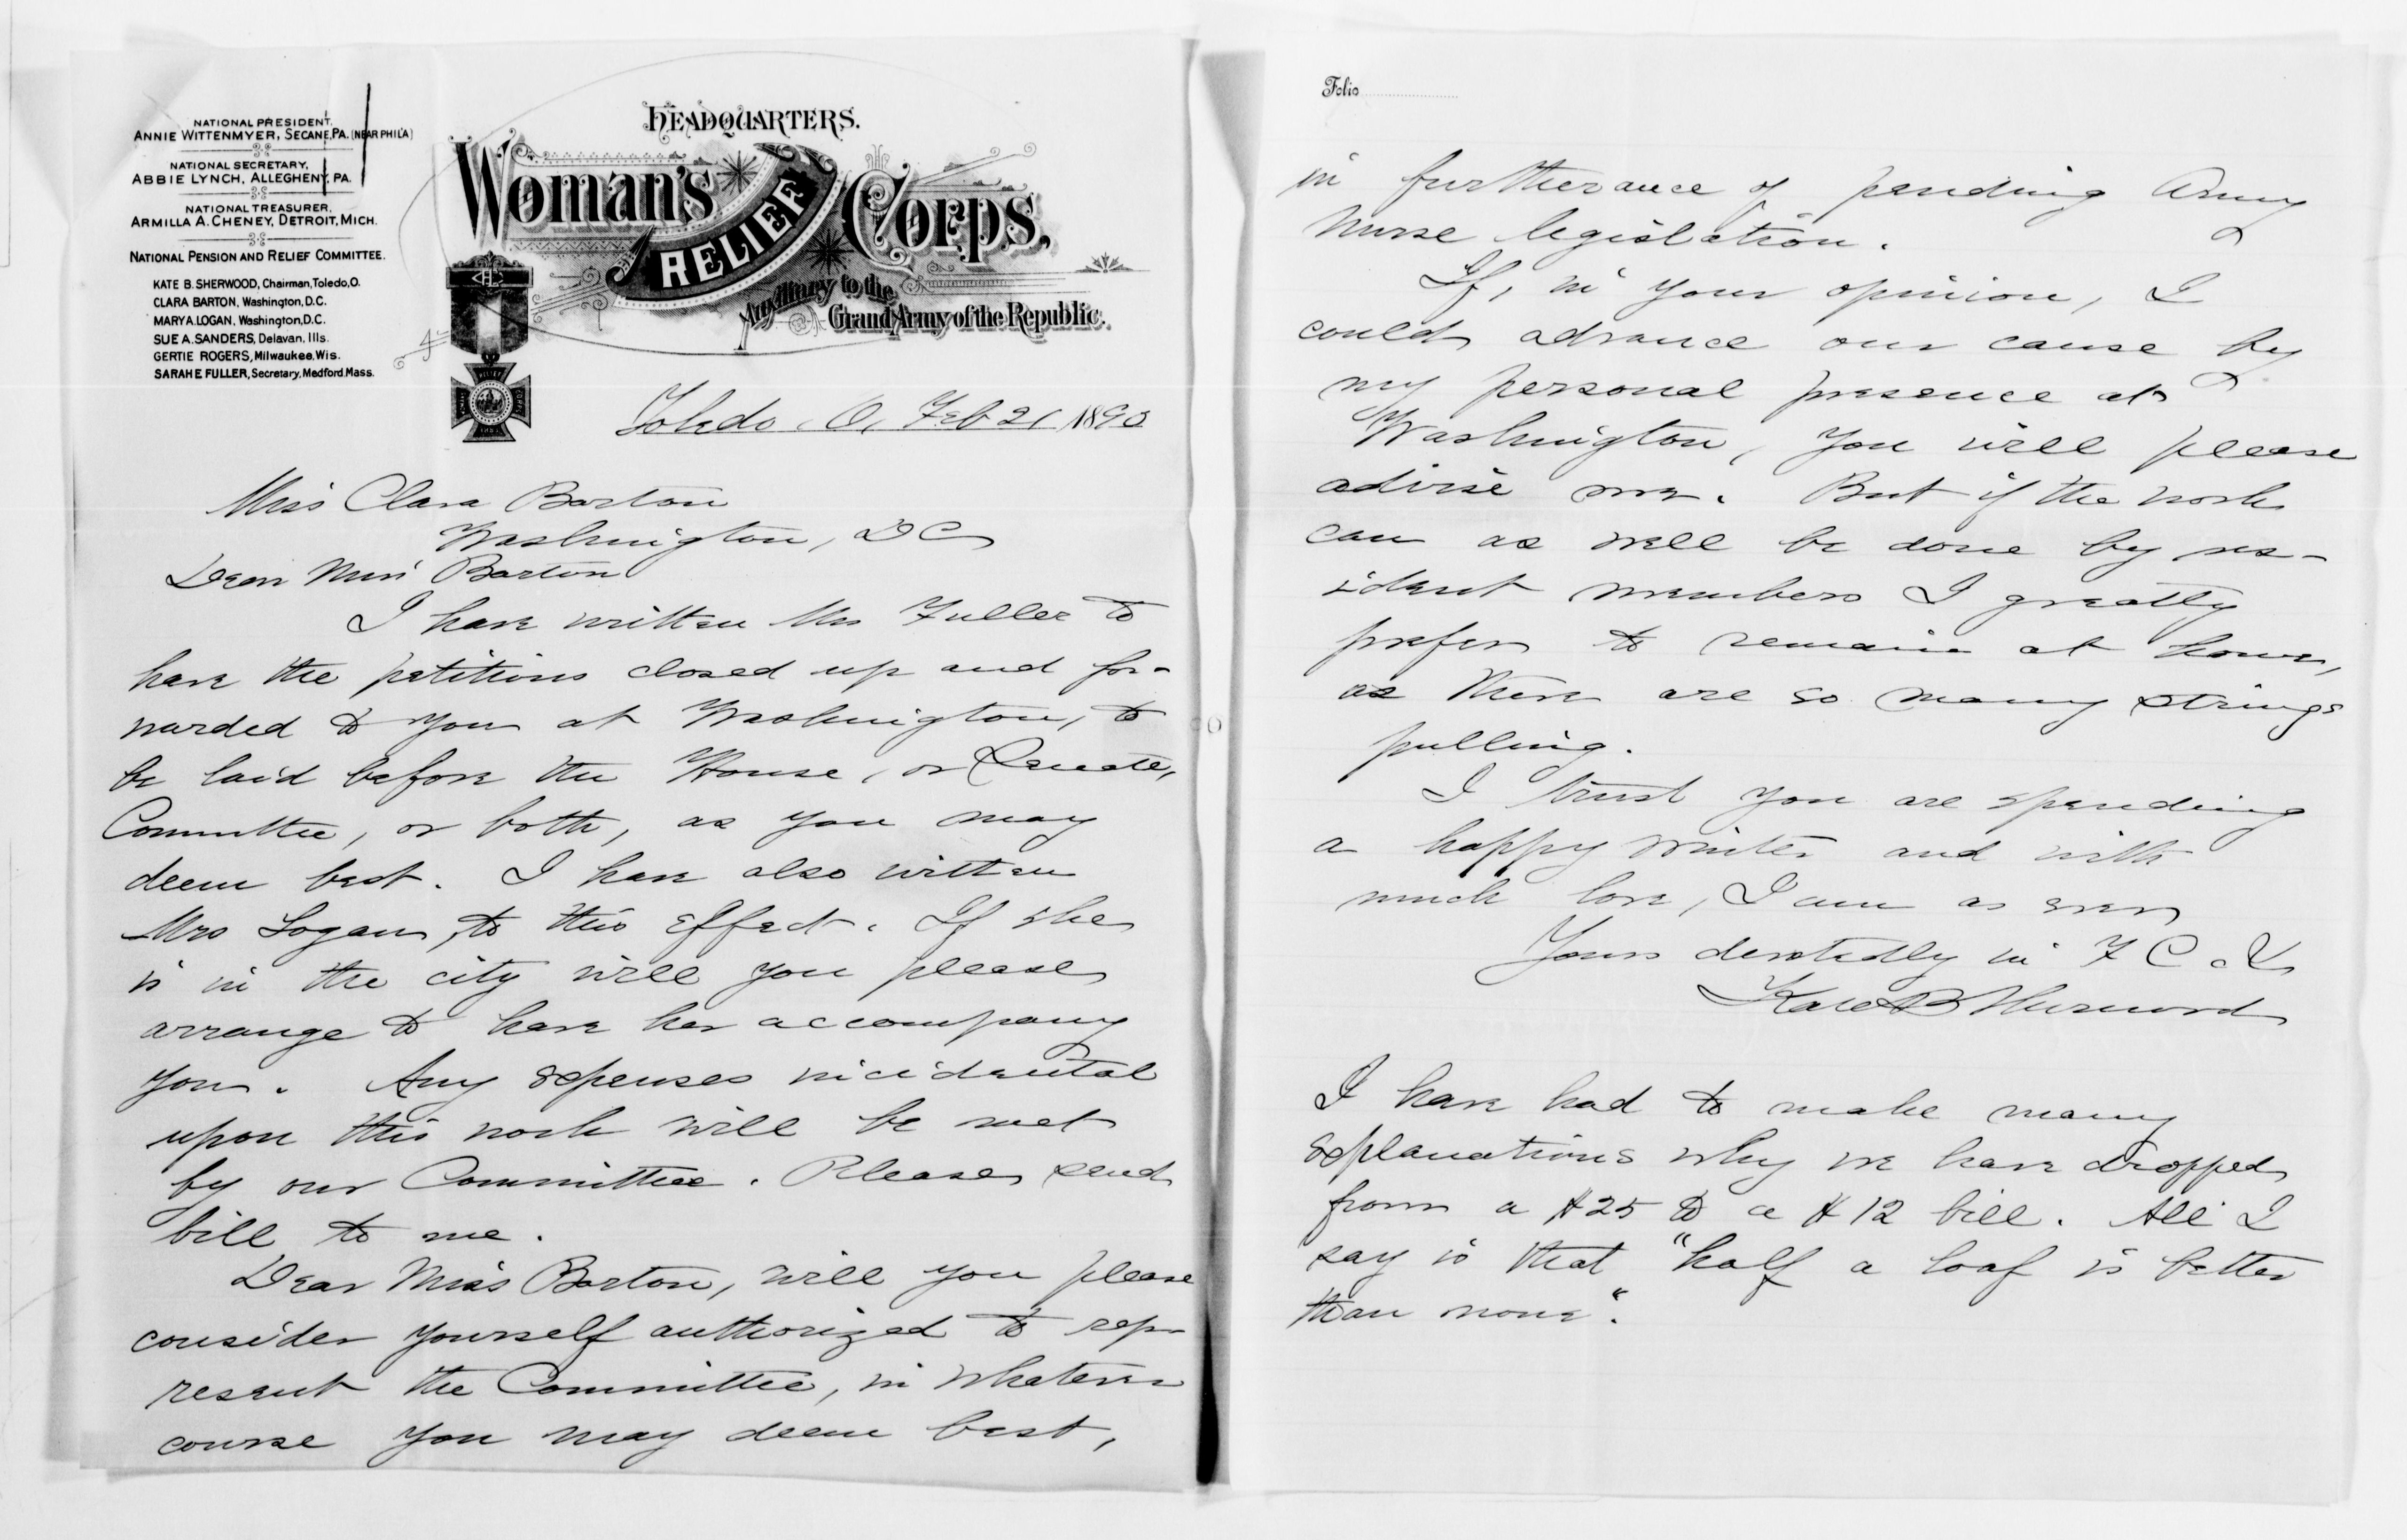 NATIONAL PRESIDENT.
ANNIE WITTENMYER, SECANE, PA. (NEAR PHIL'A)
NATIONAL SECRETARY,
ABBIE LYNCH, ALLEGHENY, PA.
NATIONAL TREASURER,
ARMILLA A. CHENEY, DETROIT, MICH.
NATIONAL PENSION AND RELIEF COMMITTEE.
KATE B. SHERWOOD, Chairman, Toledo, O.
CLARA BARTON, Washington, D.C.
MARY A. LOGAN, Washington, D.C.
SUE A. SANDERS, Delavan, Ills.
GERTIE ROGERS, Milwaukee, Wis.
SARAH E FULLER, Secretary, Medford, Mass.
HEADQUARTERS.
Woman's RELIEF Corps,
Auxiliary to the
Grand Army of the Republic.
Toledo, O, Feb 21 1890
Miss Clara Barton
Washington, DC
Dear Miss Barton
I have written Mrs Fuller to
have the petitions closed up and for-
warded to you at Washington, to
be laid before the House, or Senate,
Committee, or both, as you may
deem best. I have also written
Mrs Logan, to this effect. If she
is in the city will you please
arrange to have her accompany
you. Any expenses incidental
upon this work will be met
by our Committee. Please send
bill to me.
Dear Miss Barton, will you please
consider yourself authorized to rep-
resent the Committee, in whatever
course you may deem best,
Folio
in furtherance of pending Army
Nurse legislation.
If, in your opinion, I
could advance our cause by
my personal presence at
Washington, you will please
advise me. But if the work
can as well be done by res-
ident members I greatly
prefer to remain at home,
as there are so many strings
pulling.
I trust you are spending
a happy winter and with
much love, I am as ever
Yours devotedly in F C & L
Kate B Sherwood
I have had to make many
explanations why we have dropped
from a $25 to a $12 bill. All I
say is that "half a loaf is better
than none".